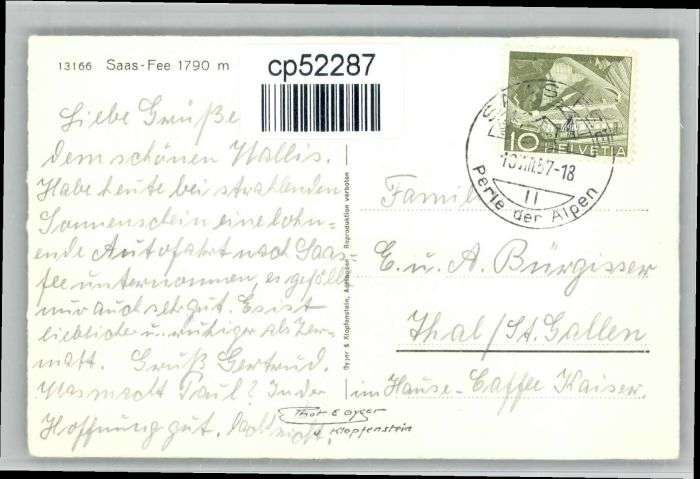 13166 Saas-Fee 1790 m
cp52287
Liebe Grüße
dem schönen Wallis.
Habe heute bei strahlenden
Sonnenschein eine lohn=
ende Autofahrt nach Saas-
fee unternommen, es gefällt
mir auch sehr gut. Es ist
lieblicher u. ruhiger als Zer-
matt. Gruß Gertrud.
Was macht Paul? In der
Hoffnung gut.
Phot E Gyger
& Klopfenstein
Gyger & Klopfenstein, Adelboden Reproduktion verboten
10
HELVETIA
SAAS-FEE
57-18
11
Perle der Alpen
Famil
E. u. A. Bürgisser
Thal / St. Gallen
im Hause - Caffee Kaiser.